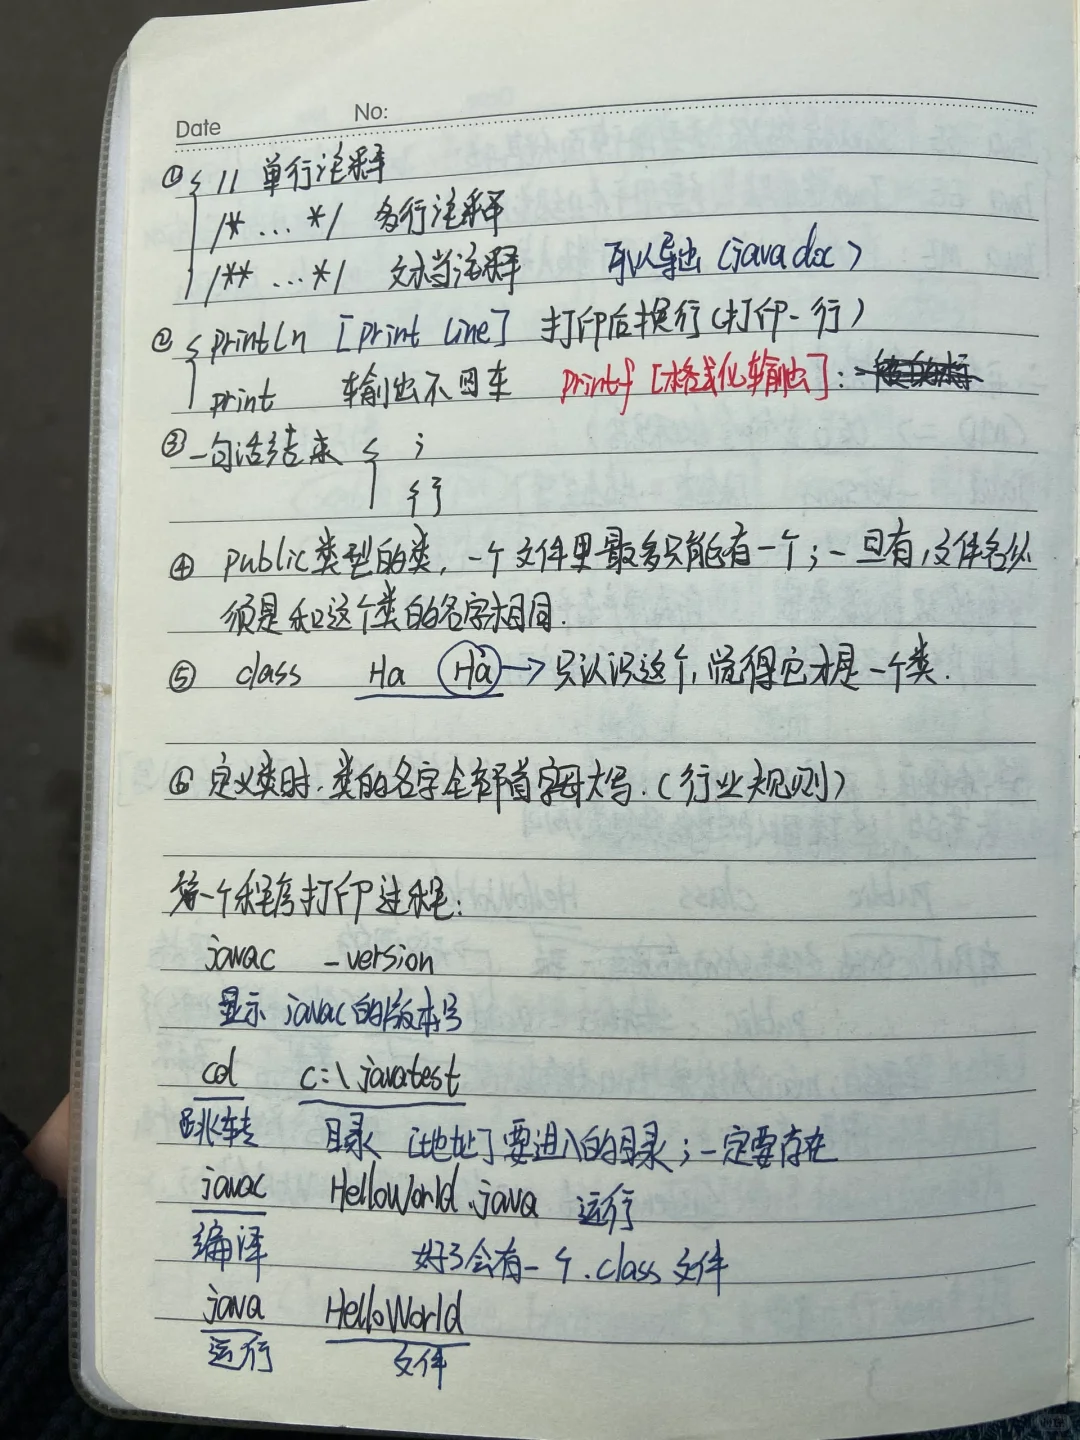 Date No:
① // 单行注释
/* ... */ 多行注释
/** ... */ 文档注释 可以导出 (javadoc)
② println [print line] 打印后换行(打印一行)
print 输出不回车 printf [格式化输出]:
③ 一句话结束 ;
行
④ public类型的类, 一个文件里最多只能有一个;一旦有,文件名必
须是和这个类的名字相同.
⑤ class Ha Ha → 只认识这个,觉得它才是一个类.
⑥ 定义类时.类的名字全部首字母大写.(行业规则)
第一个程序打印过程:
javac -version
显示 javac的版本号
cd c:\javatest
跳转 目录 [地址] 要进入的目录;一定要存在
javac HelloWorld.java 运行
编译 好了会有一个.class文件
java HelloWorld
运行 文件